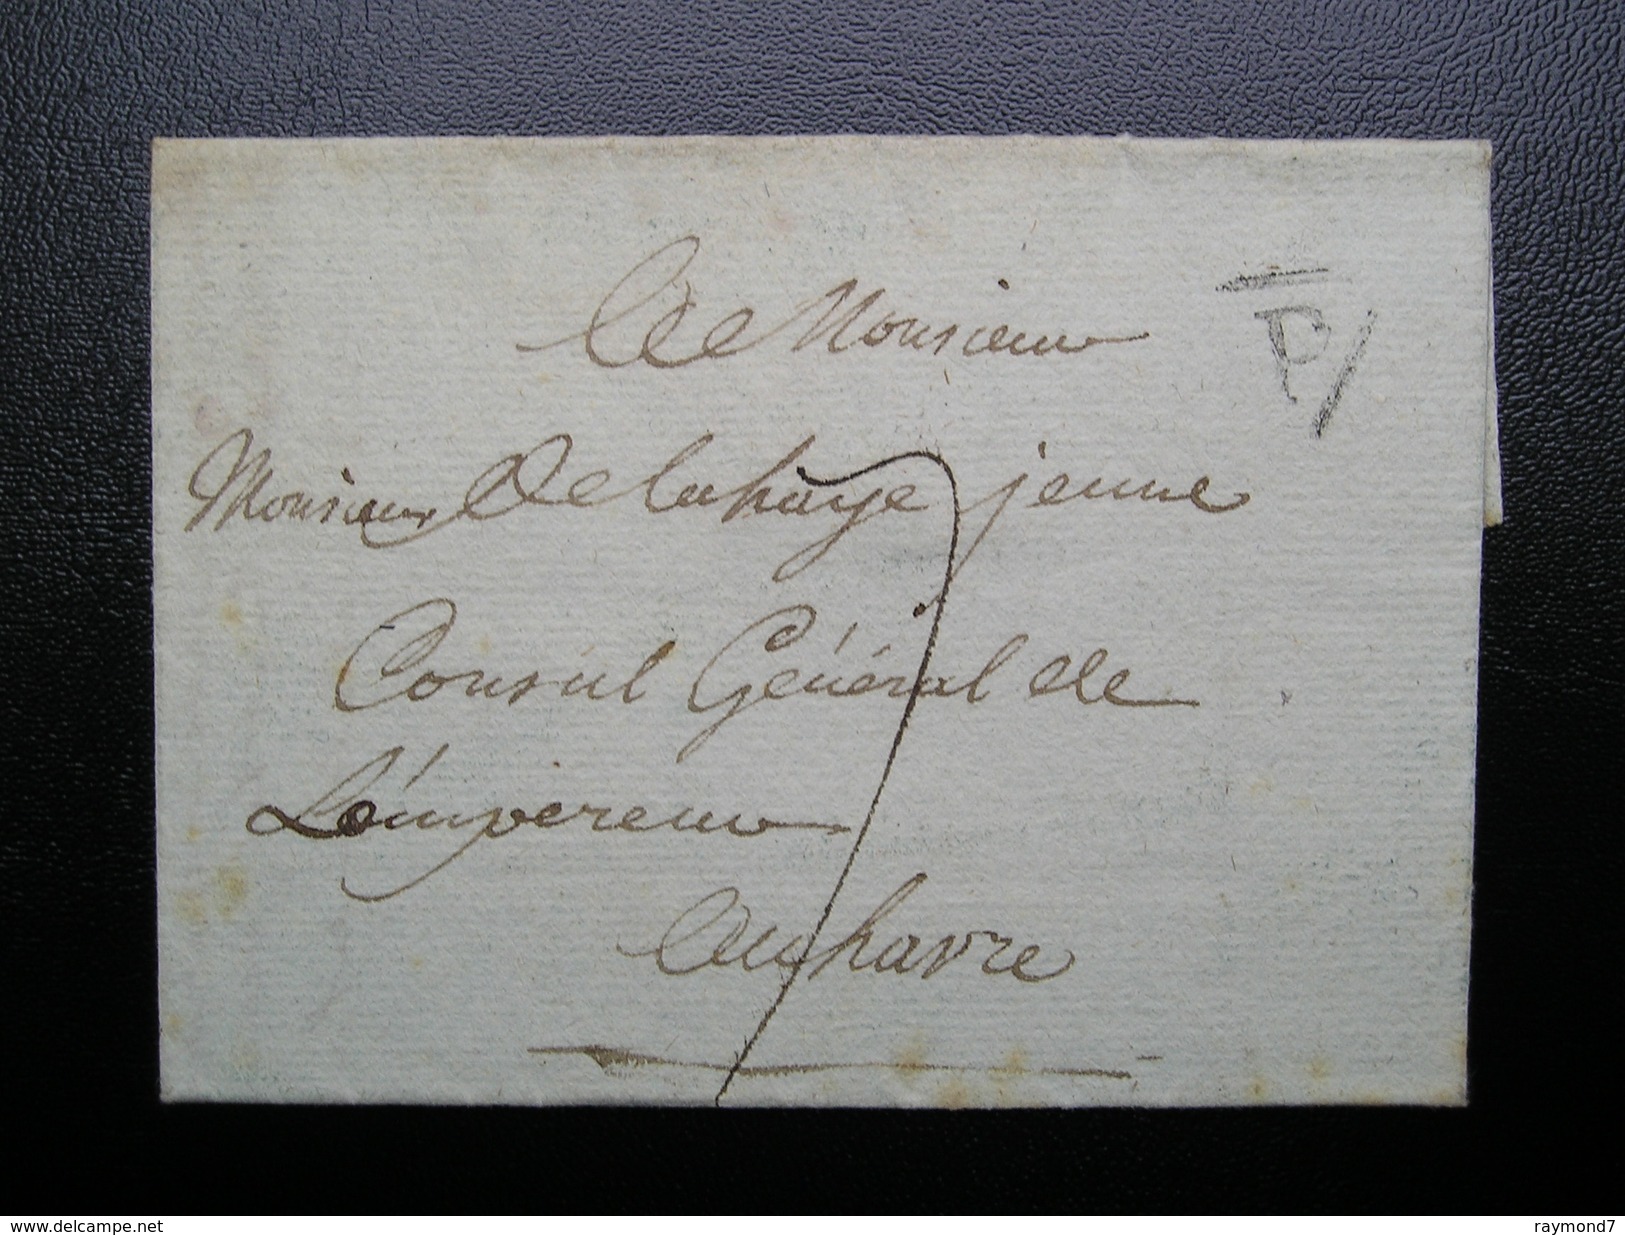 A Monsieur
P
Monsieur De lahaye jeune
Consul Général de
L'émpereur
Au havre
7
www.delcampe.net
raymond7